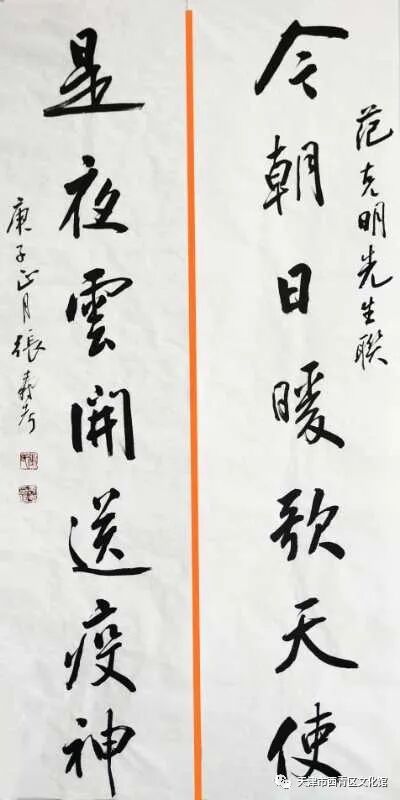 范克明先生联
今朝日暖歌天使
是夜雲開送疫神
庚子正月張壽
天津市西青区文化馆